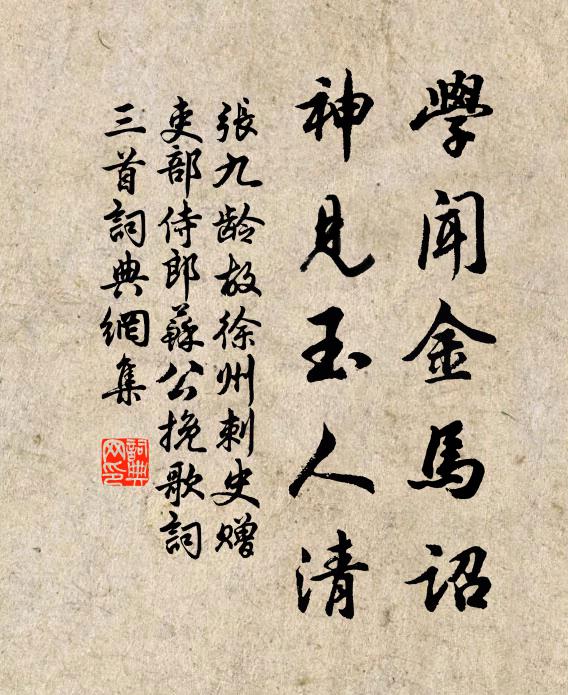 學聞金馬詔
神見玉人清
張九龄故徐州刺史赠
吏部侍郎蘇公挽歌詞
三首詞典網集
詞典
网印